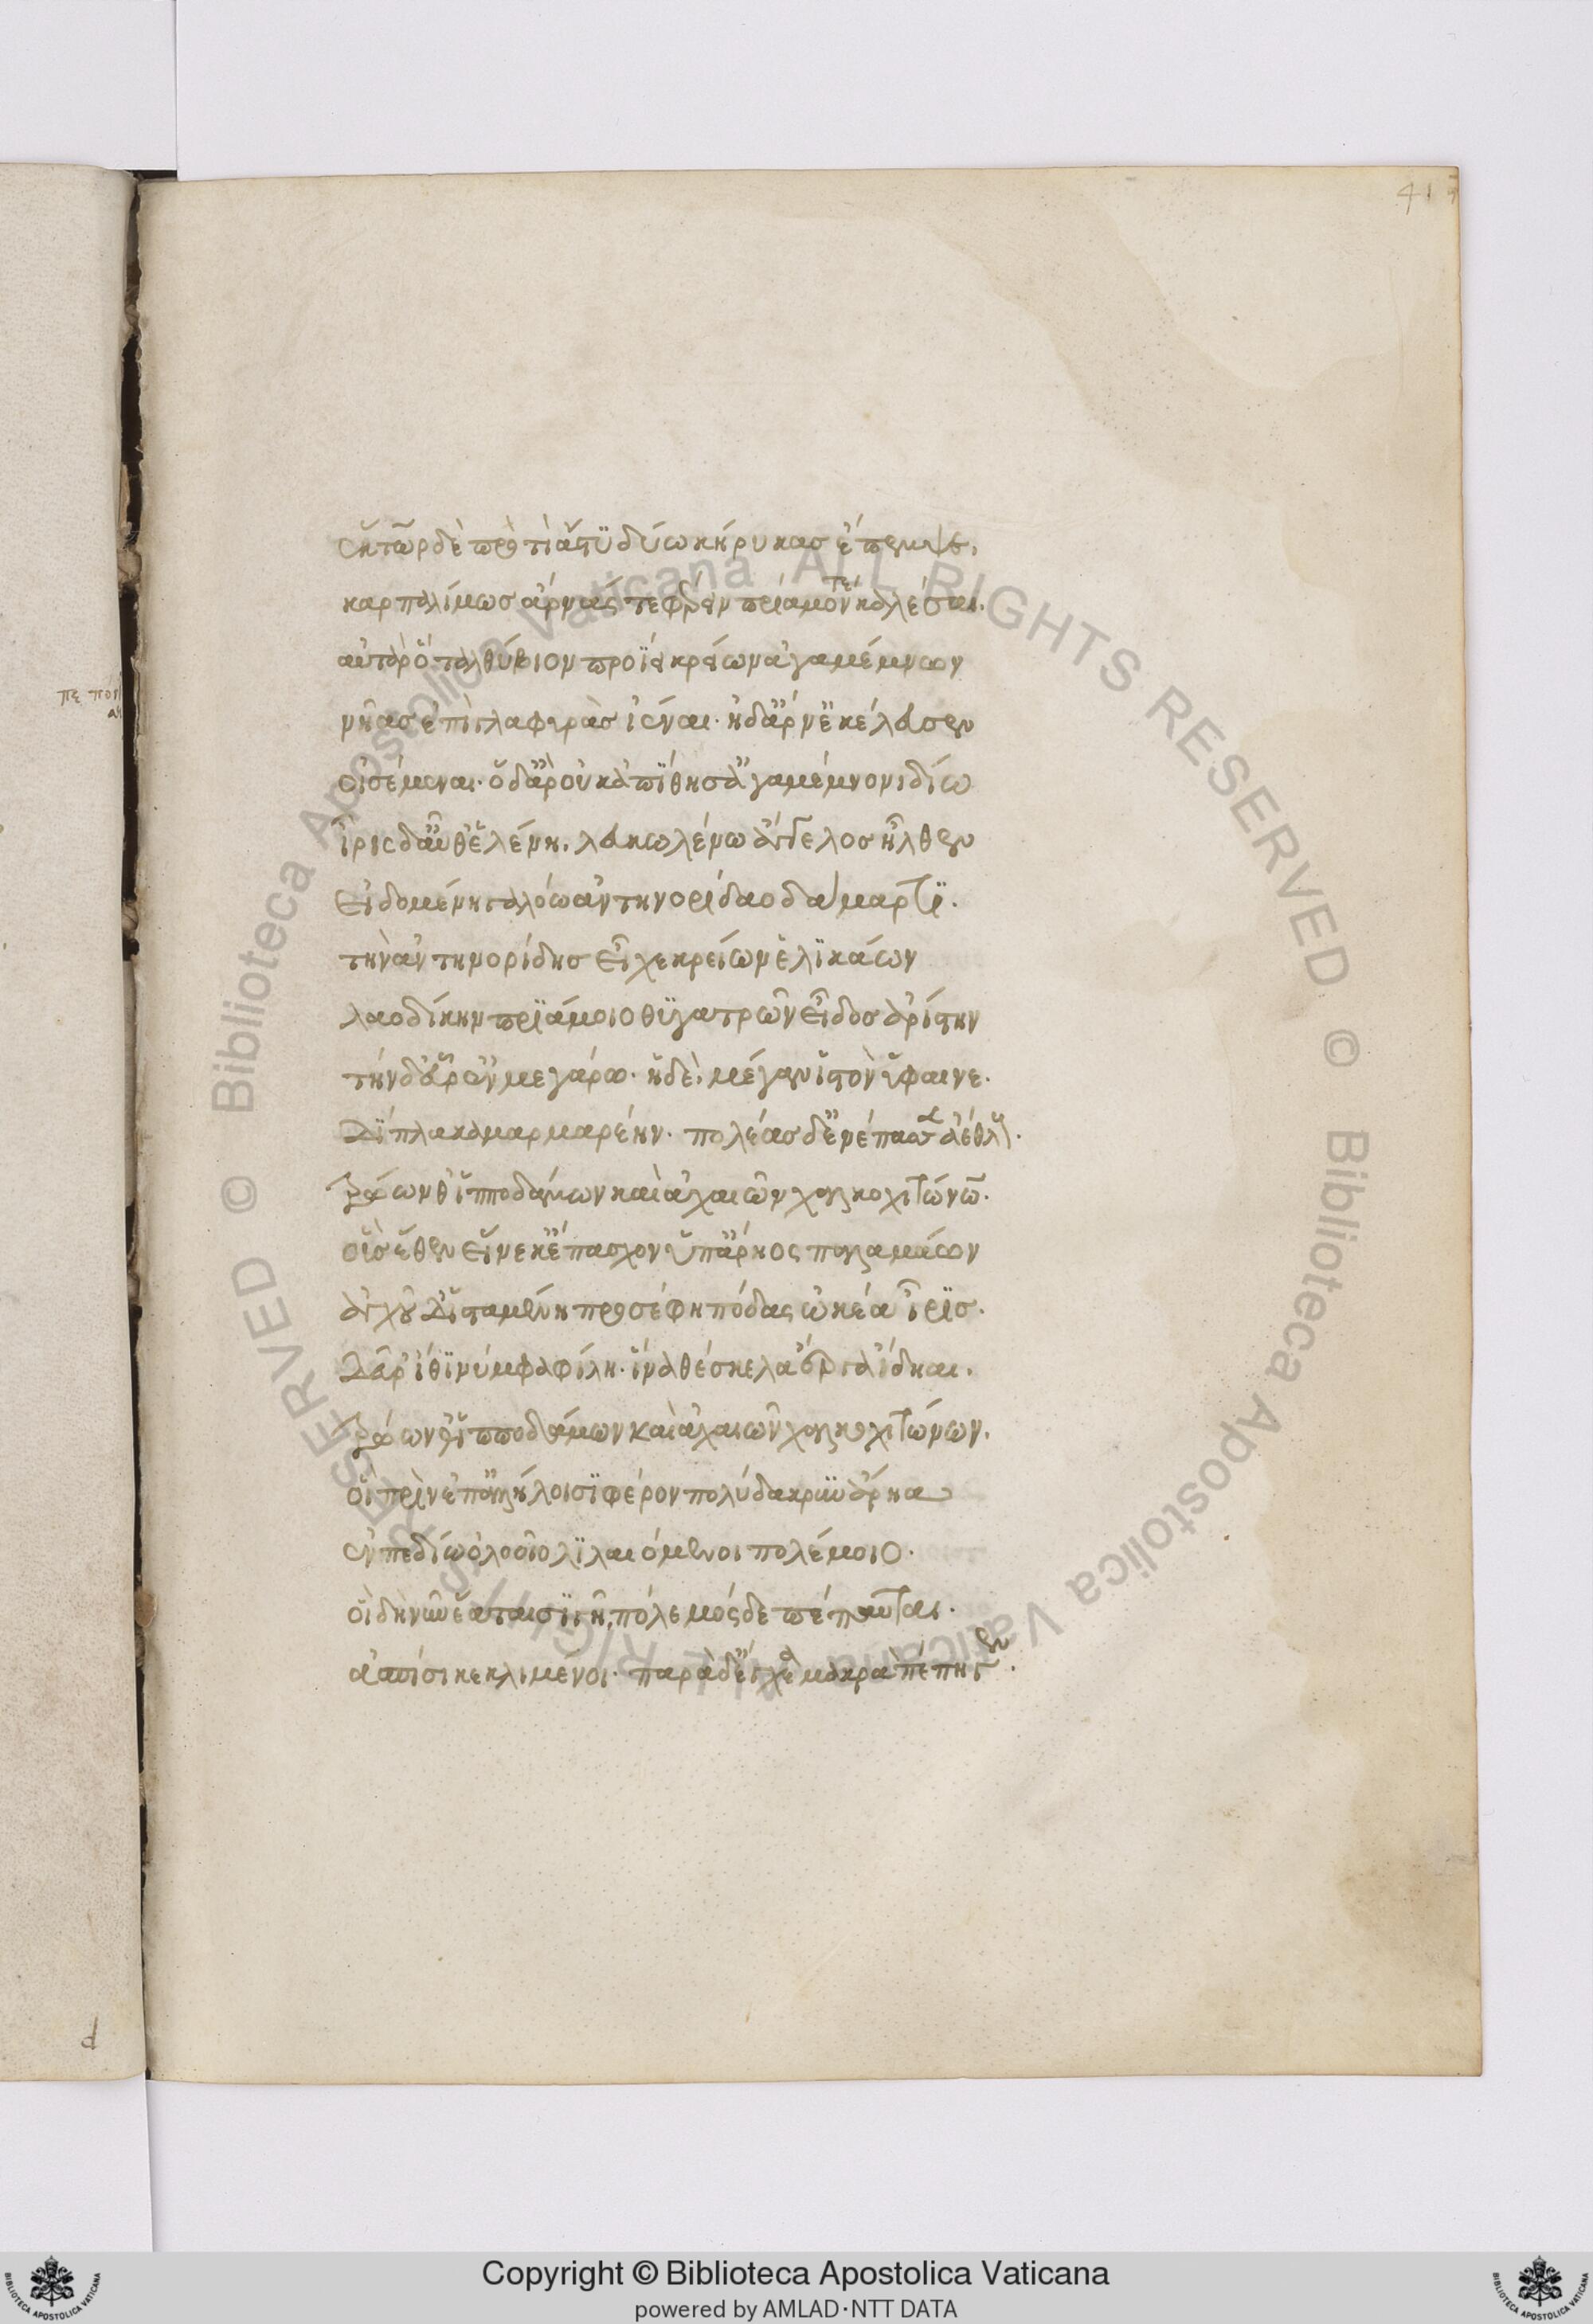 41
ἕκτωρ δὲ προτὶ ἄστυ δύω κήρυκασ ἔπεμψε.
καρπαλίμωσ ἄρνάς τε φέρειν πρίαμόν τε καλέσσαι.
αὐτὰρ ὃ ταλθύβιον προΐει κρείων ἀγαμέμνων
νῆασ ἐπὶ γλαφυρὰσ ἰέναι. ἠδ' ἄρν' ἐκέλευσεν
οἰσέμεναι. ὃ δ' ἄρ' οὐκ ἀπίθησ' ἀγαμέμνονι δίω
ἶρις δ' αὖθ' ἑλένη. λευκωλένω ἄγγελοσ ἦλθεν
εἰδομένη γαλόω ἀντηνορίδαο δάμαρτι.
τὴν ἀντηνορίδησ εἶχε κρείων ἑλϊκάων
λαοδίκην πριάμοιο θυγατρῶν εἶδοσ ἀρίστην
τὴν δ' εὗρ' ἐν μεγάρω. ἡ δὲ, μέγαν ἱστὸν ὕφαινε.
δίπλακα μαρμαρέην. πολέασ δ' ἐνέπασσεν ἀέθλους.
τρώων θ' ἱπποδάμων καὶ ἀχαιῶν χαλκοχιτώνων.
οὓσ ἕθεν εἵνεκ' ἔπασχον ὑπ' ἄρηος παλαμάων
ἀγχοῦ δ' ἱσταμένη προσέφη πόδας ὠκέα ἶρισ.
δεῦρ' ἴθι νύμφα φίλη. ἵνα θέσκελα ἔργα ἴδηαι.
τρώων θ' ἱπποδάμων καὶ ἀχαιῶν χαλκοχιτώνων.
οἳ πρὶν ἐπ' ἀλλήλοισι φέρον πολύδακρυν ἄρηα
ἐν πεδίω ὀλοοῖο λιλαιόμενοι πολέμοιο.
οἳ δὴ νῦν ἕαται σιγῆ, πόλεμος δὲ πέπαυται.
ἀσπίσι κεκλιμένοι. παρὰ δ' ἔγχεα μακρὰ πέπηγεν.
© Biblioteca Apostolica Vaticana ALL RIGHTS RESERVED
© Biblioteca Apostolica Vaticana ALL RIGHTS RESERVED
Copyright © Biblioteca Apostolica Vaticana
powered by AMLAD·NTT DATA
BIBLIOTECA APOSTOLICA VATICANA
BIBLIOTECA APOSTOLICA VATICANA